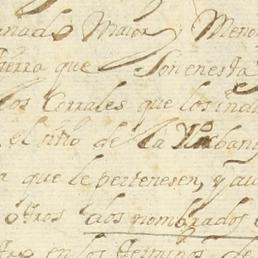 anado Maior y Meno
tierra que Son en esta
los Corrales que los ind
el sitio de la Urban
a que le pertenesen, y au
otros dos nombrados
en los terminos de